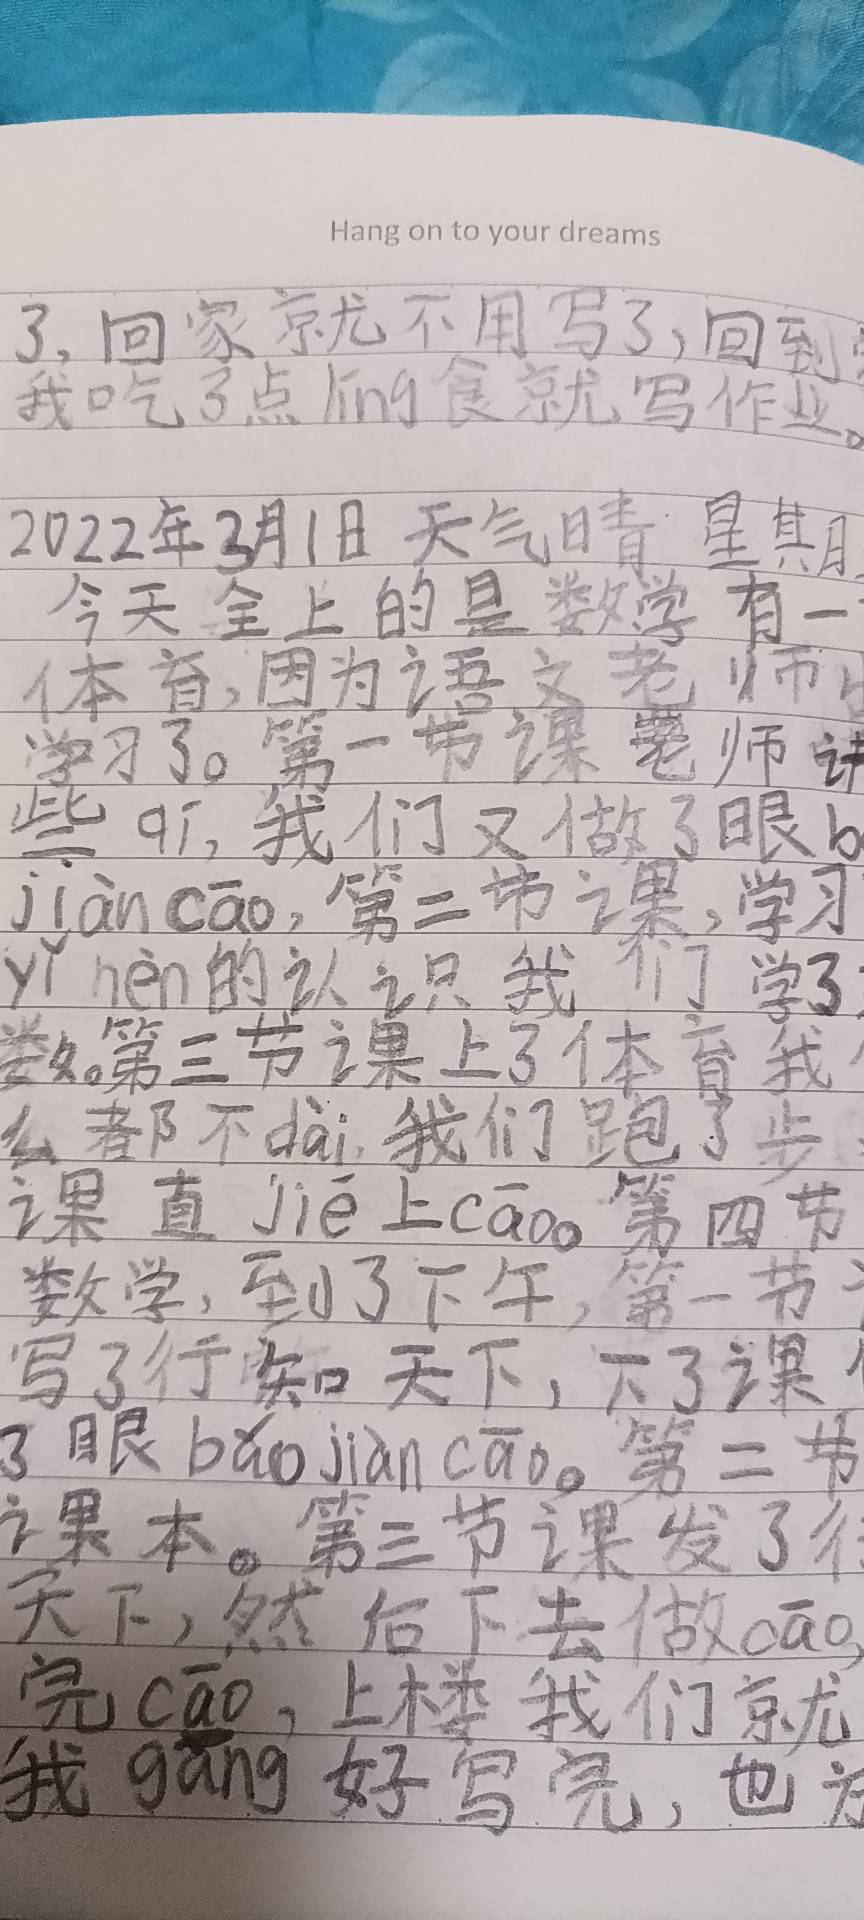 Hang on to your dreams
了,回家就不用写了,回到
我吃了点líng食就写作业。
2022年3月1日 天气晴 星期
今天全上的是数学有一
体育,因为语文老师
学习了。第一节课老师讲
些qí,我们又做了眼b
jiàncāo,第二节课,学习
yǐ nèn的认识我们学了
数。第三节课上了体育我
么都不dài,我们跑了步
课直jiē上cāo。第四节
数学,到了下午,第一节
写了行知天下,下了课
了眼bǎojiàncāo。第二节
课本。第三节课发了行
天下,然后下去做cāo,
完cāo,上楼我们就
我gāng好写完,也